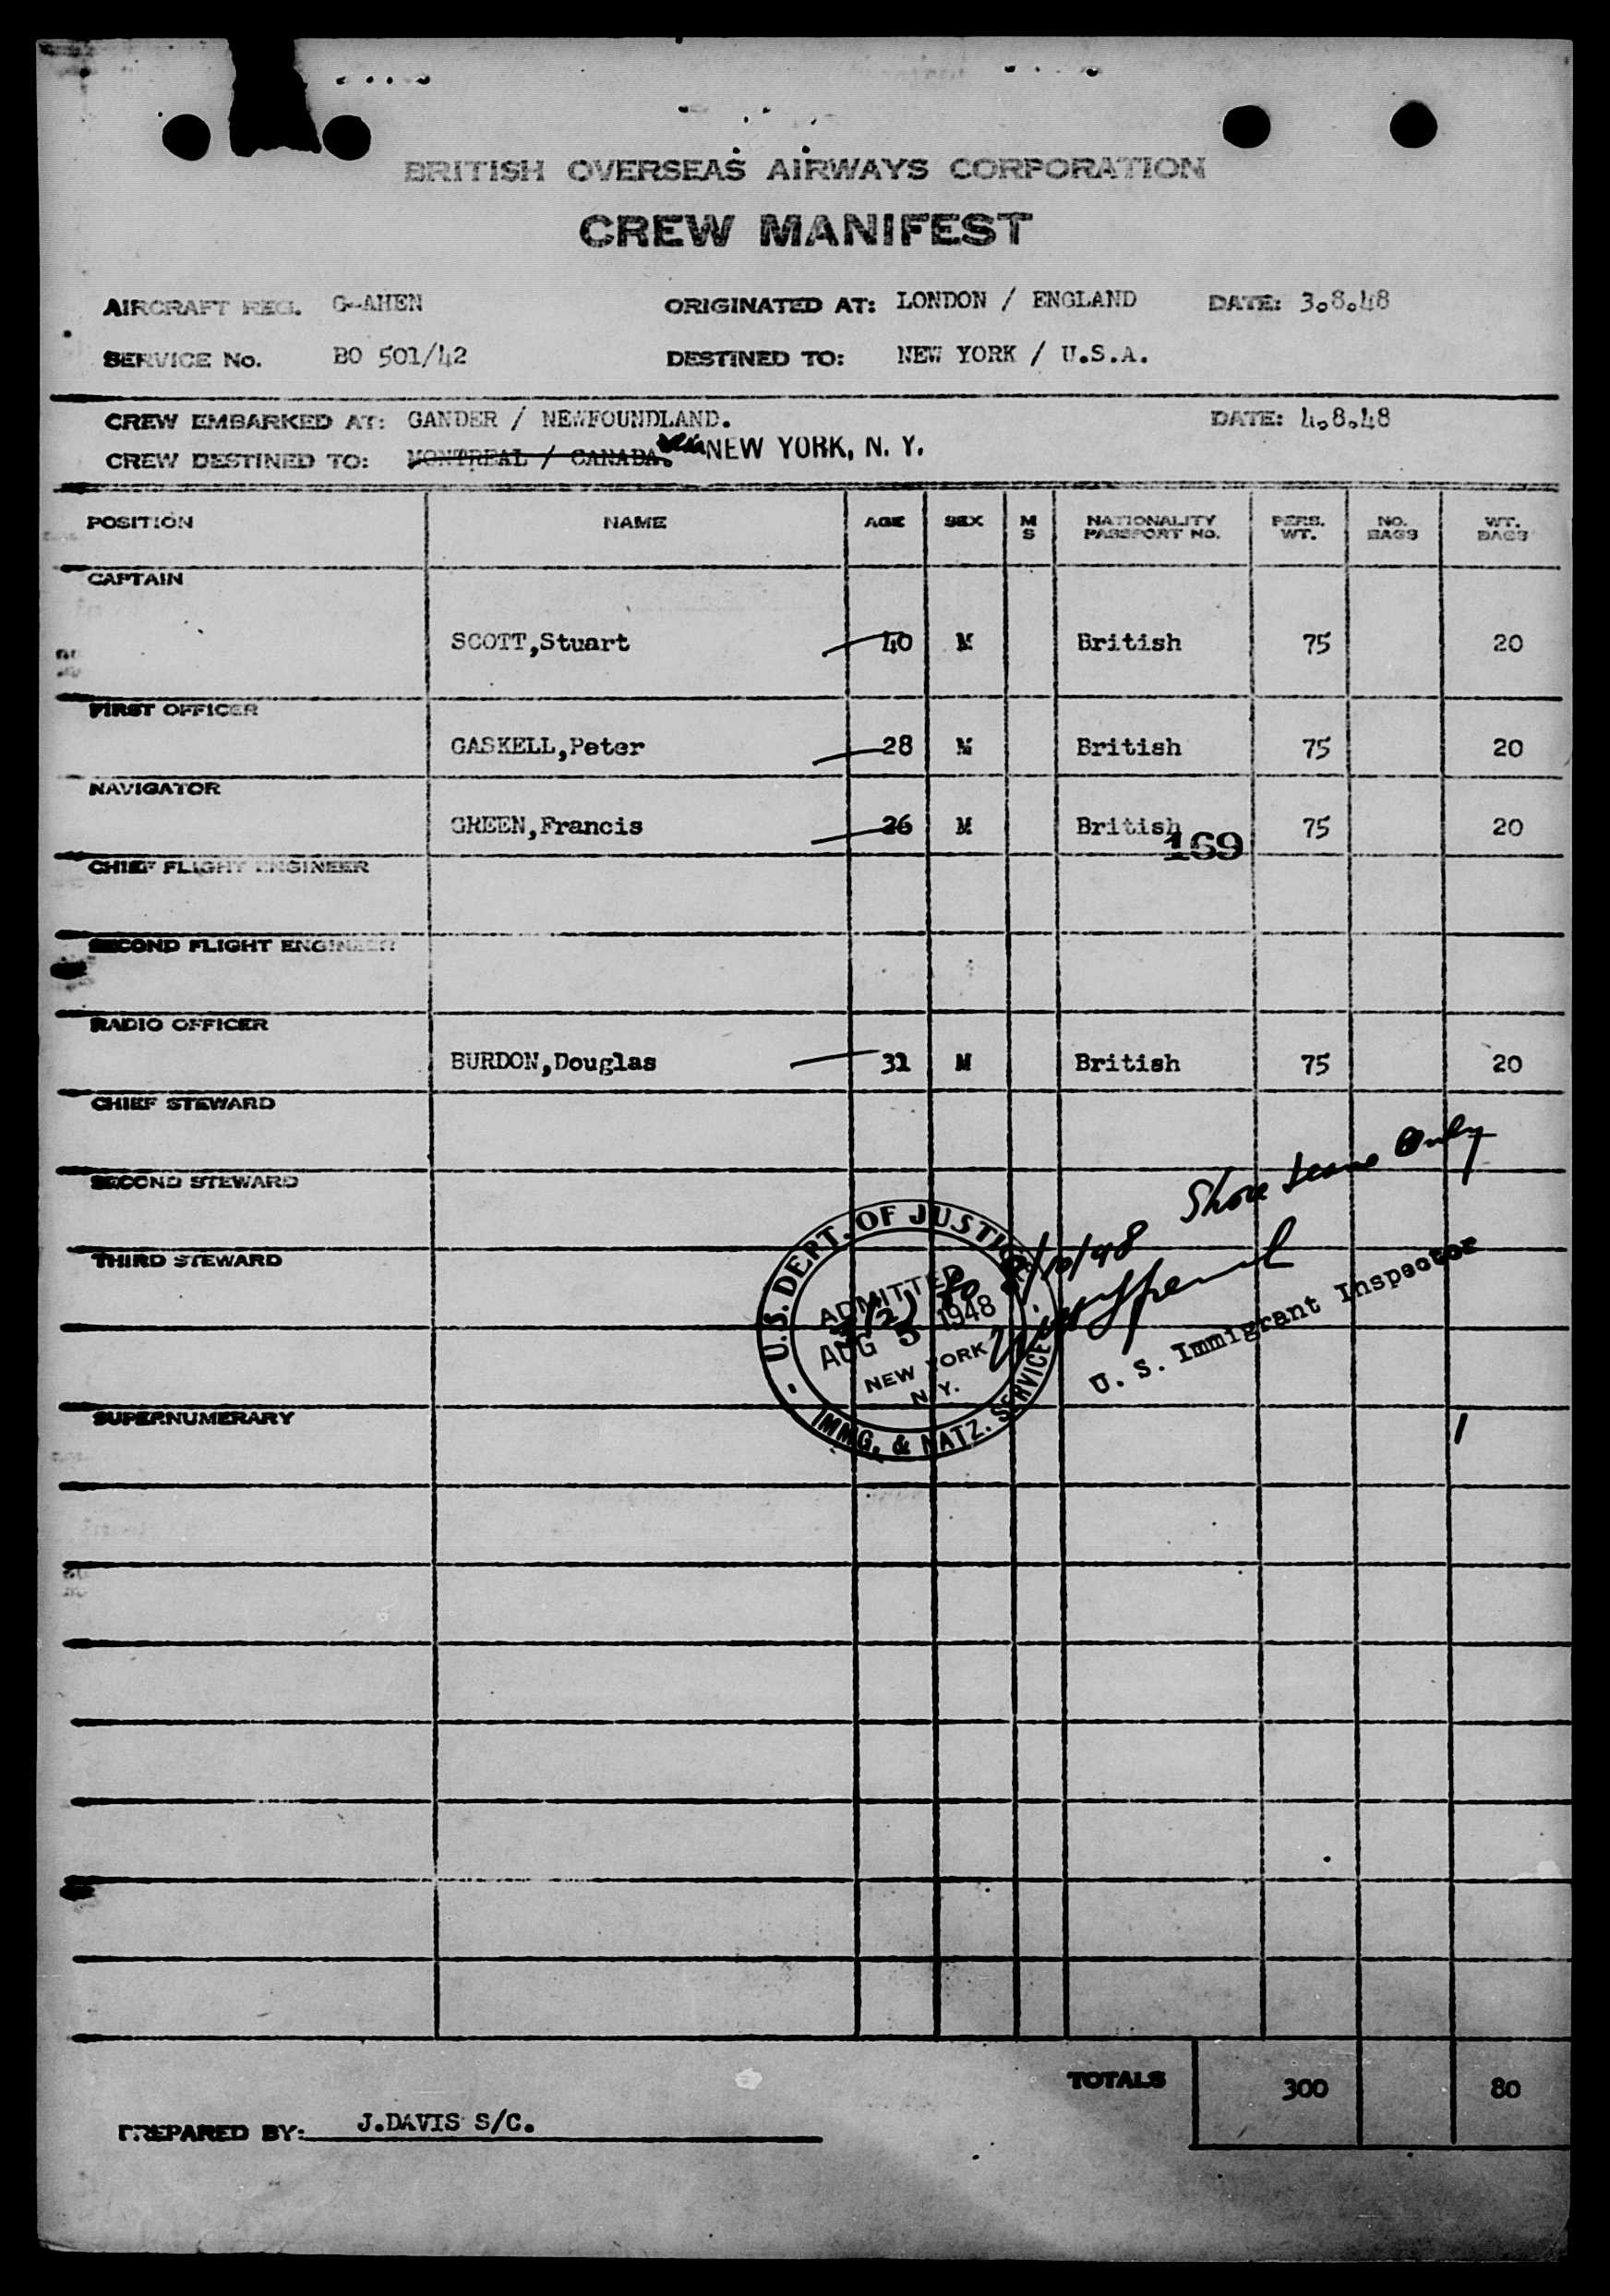 BRITISH OVERSEAS AIRWAYS CORPORATION
CREW MANIFEST
AIRCRAFT REG. G-AHEN ORIGINATED AT: LONDON / ENGLAND DATE: 3.8.48
SERVICE No. BO 501/42 DESTINED TO: NEW YORK / U.S.A.
CREW EMBARKED AT: GANDER / NEWFOUNDLAND. DATE: 4.8.48
CREW DESTINED TO: MONTREAL / CANADA. NEW YORK, N. Y.
POSITION NAME AGE SEX M S NATIONALITY PASSPORT NO. PERS. WT. NO. BAGS WT. BAGS
CAPTAIN
SCOTT,Stuart 40 M British 75 20
FIRST OFFICER
GASKELL,Peter 28 M British 75 20
NAVIGATOR
GREEN,Francis 26 M British 75 20
169
CHIEF FLIGHT ENGINEER
SECOND FLIGHT ENGINEER
RADIO OFFICER
BURDON,Douglas 31 M British 75 20
CHIEF STEWARD
Shore Leave Only
SECOND STEWARD
THIRD STEWARD
U.S. DEPT. OF JUSTICE
ADMITTED
AUG 5 1948
NEW YORK
N.Y.
IMMG. & NATZ. SERVICE
U. S. Immigrant Inspector
SUPERNUMERARY
TOTALS 300 80
PREPARED BY: J.DAVIS S/C.